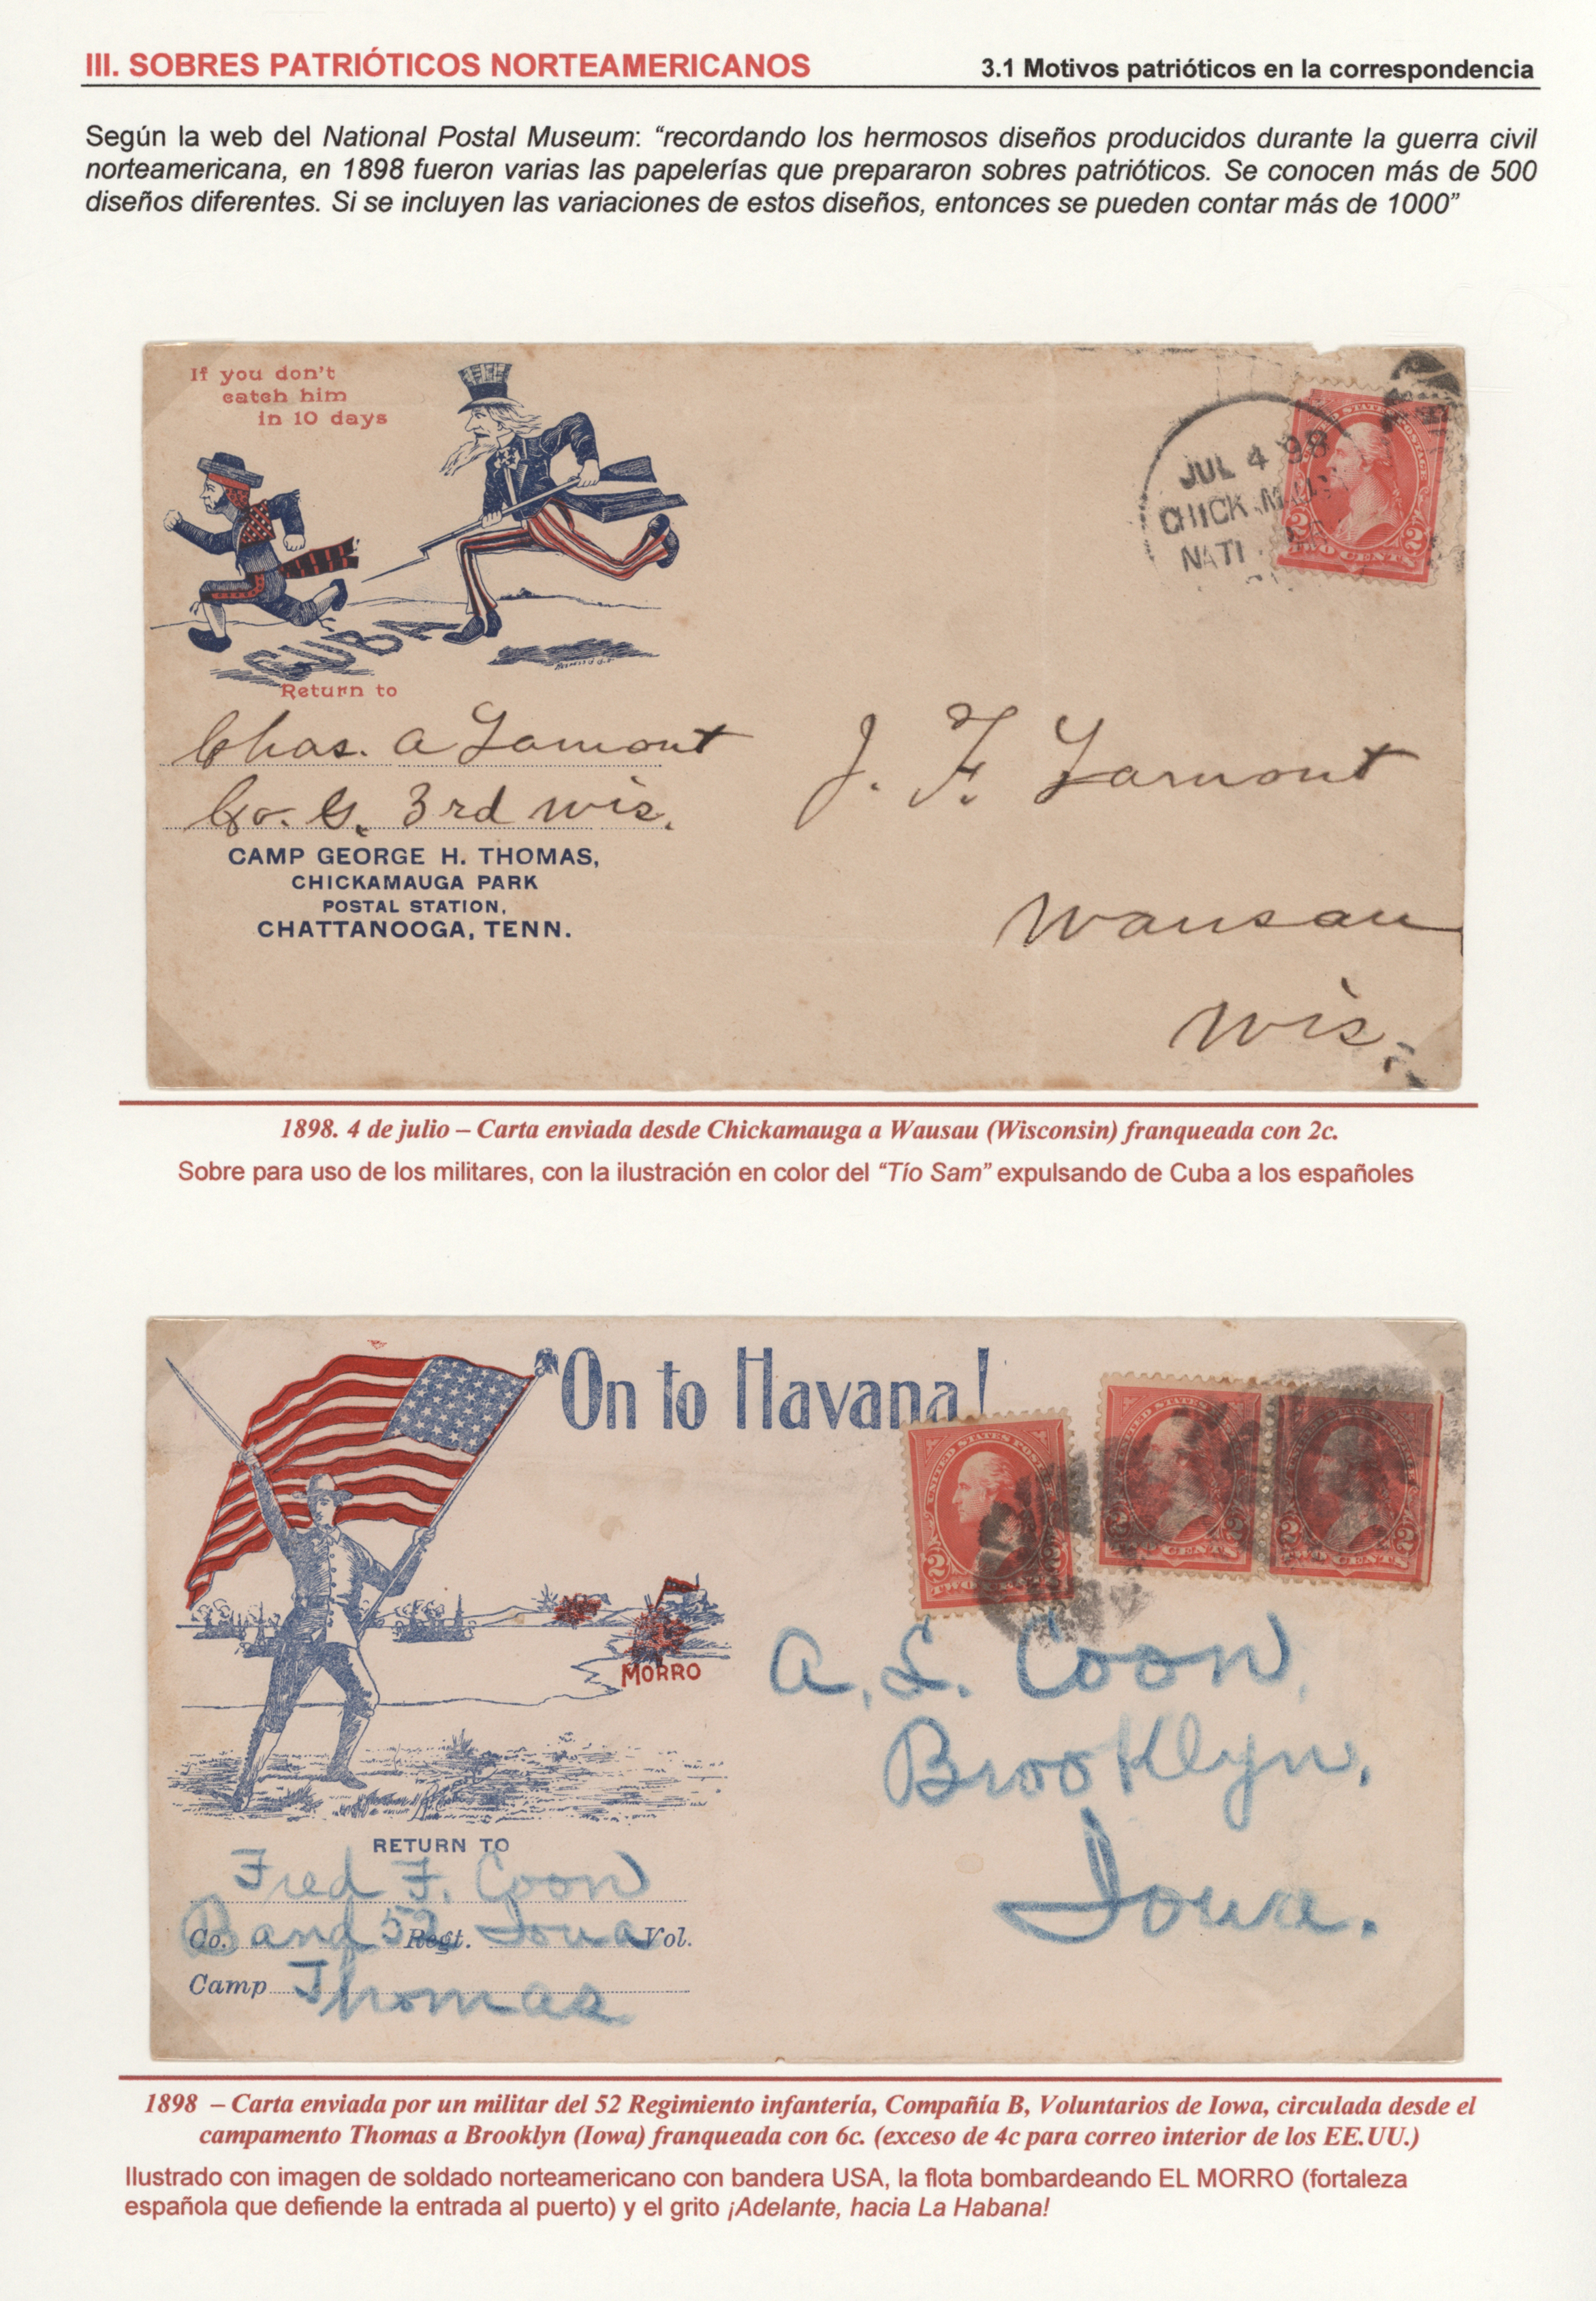 III. SOBRES PATRIÓTICOS NORTEAMERICANOS
3.1 Motivos patrióticos en la correspondencia
Según la web del National Postal Museum: “recordando los hermosos diseños producidos durante la guerra civil
norteamericana, en 1898 fueron varias las papelerías que prepararon sobres patrióticos. Se conocen más de 500
diseños diferentes. Si se incluyen las variaciones de estos diseños, entonces se pueden contar más de 1000”
If you don't
catch him
in 10 days
CUBA
Return to
Chas. A Lamont
Co. G. 3rd Wis.
CAMP GEORGE H. THOMAS,
CHICKAMAUGA PARK
POSTAL STATION,
CHATTANOOGA, TENN.
JUL 4 98
CHICKAMAUG
NATL
2 2
TWO CENTS
J. F. Lamont
Wausau
Wis.
1898. 4 de julio – Carta enviada desde Chickamauga a Wausau (Wisconsin) franqueada con 2c.
Sobre para uso de los militares, con la ilustración en color del “Tío Sam” expulsando de Cuba a los españoles
"On to Havana!
UNITED STATES POSTAGE
2 2
TWO CENTS
2 2
CENTS
2 2
TWO CENTS
MORRO
A. L. Coon,
Brooklyn,
Iowa.
RETURN TO
Fred F. Coon
Co. Band 52 Regt. Iowa Vol.
Camp Thomas
1898 – Carta enviada por un militar del 52 Regimiento infantería, Compañía B, Voluntarios de Iowa, circulada desde el
campamento Thomas a Brooklyn (Iowa) franqueada con 6c. (exceso de 4c para correo interior de los EE.UU.)
Ilustrado con imagen de soldado norteamericano con bandera USA, la flota bombardeando EL MORRO (fortaleza
española que defiende la entrada al puerto) y el grito ¡Adelante, hacia La Habana!